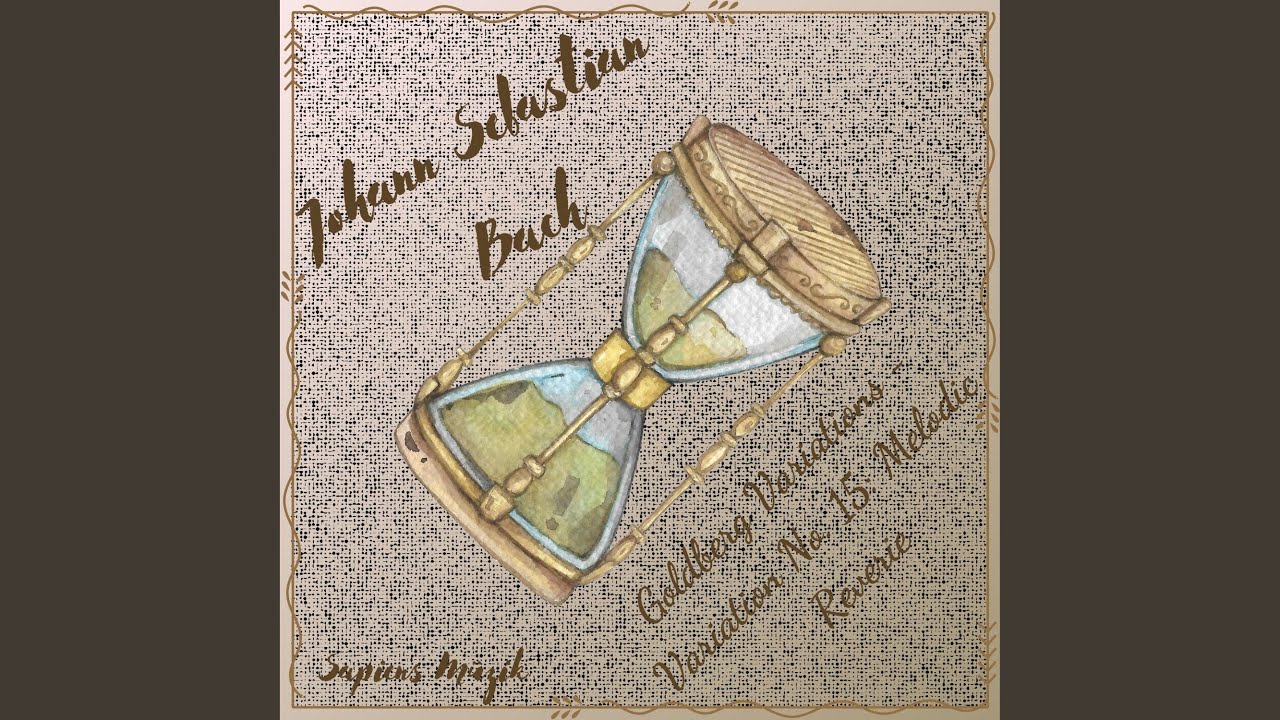 Johann Sebastian
Bach
Goldberg Variations -
Variation No. 15: Melodic
Reverie
Sapiens Muzik